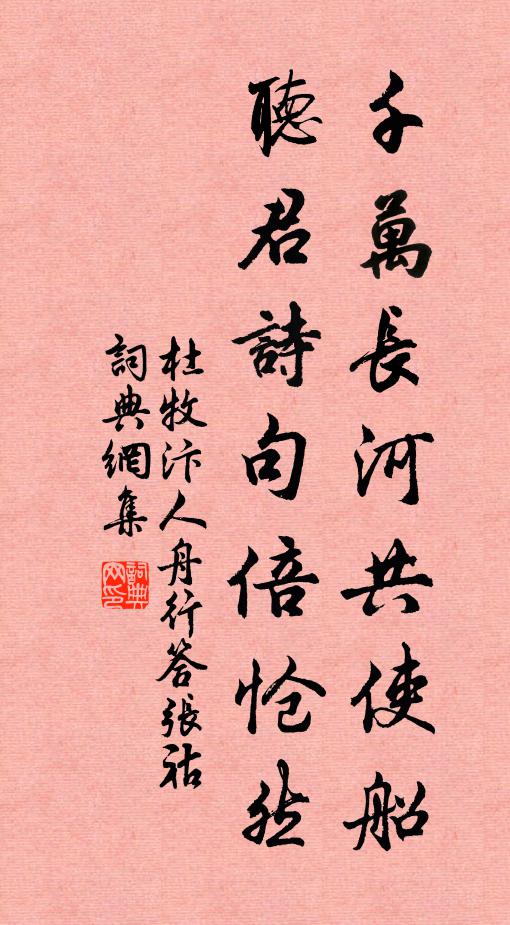 千萬長河共使船
聽君詩句倍愴然
杜牧汴人舟行答張祜
詞典網集
詞典網印